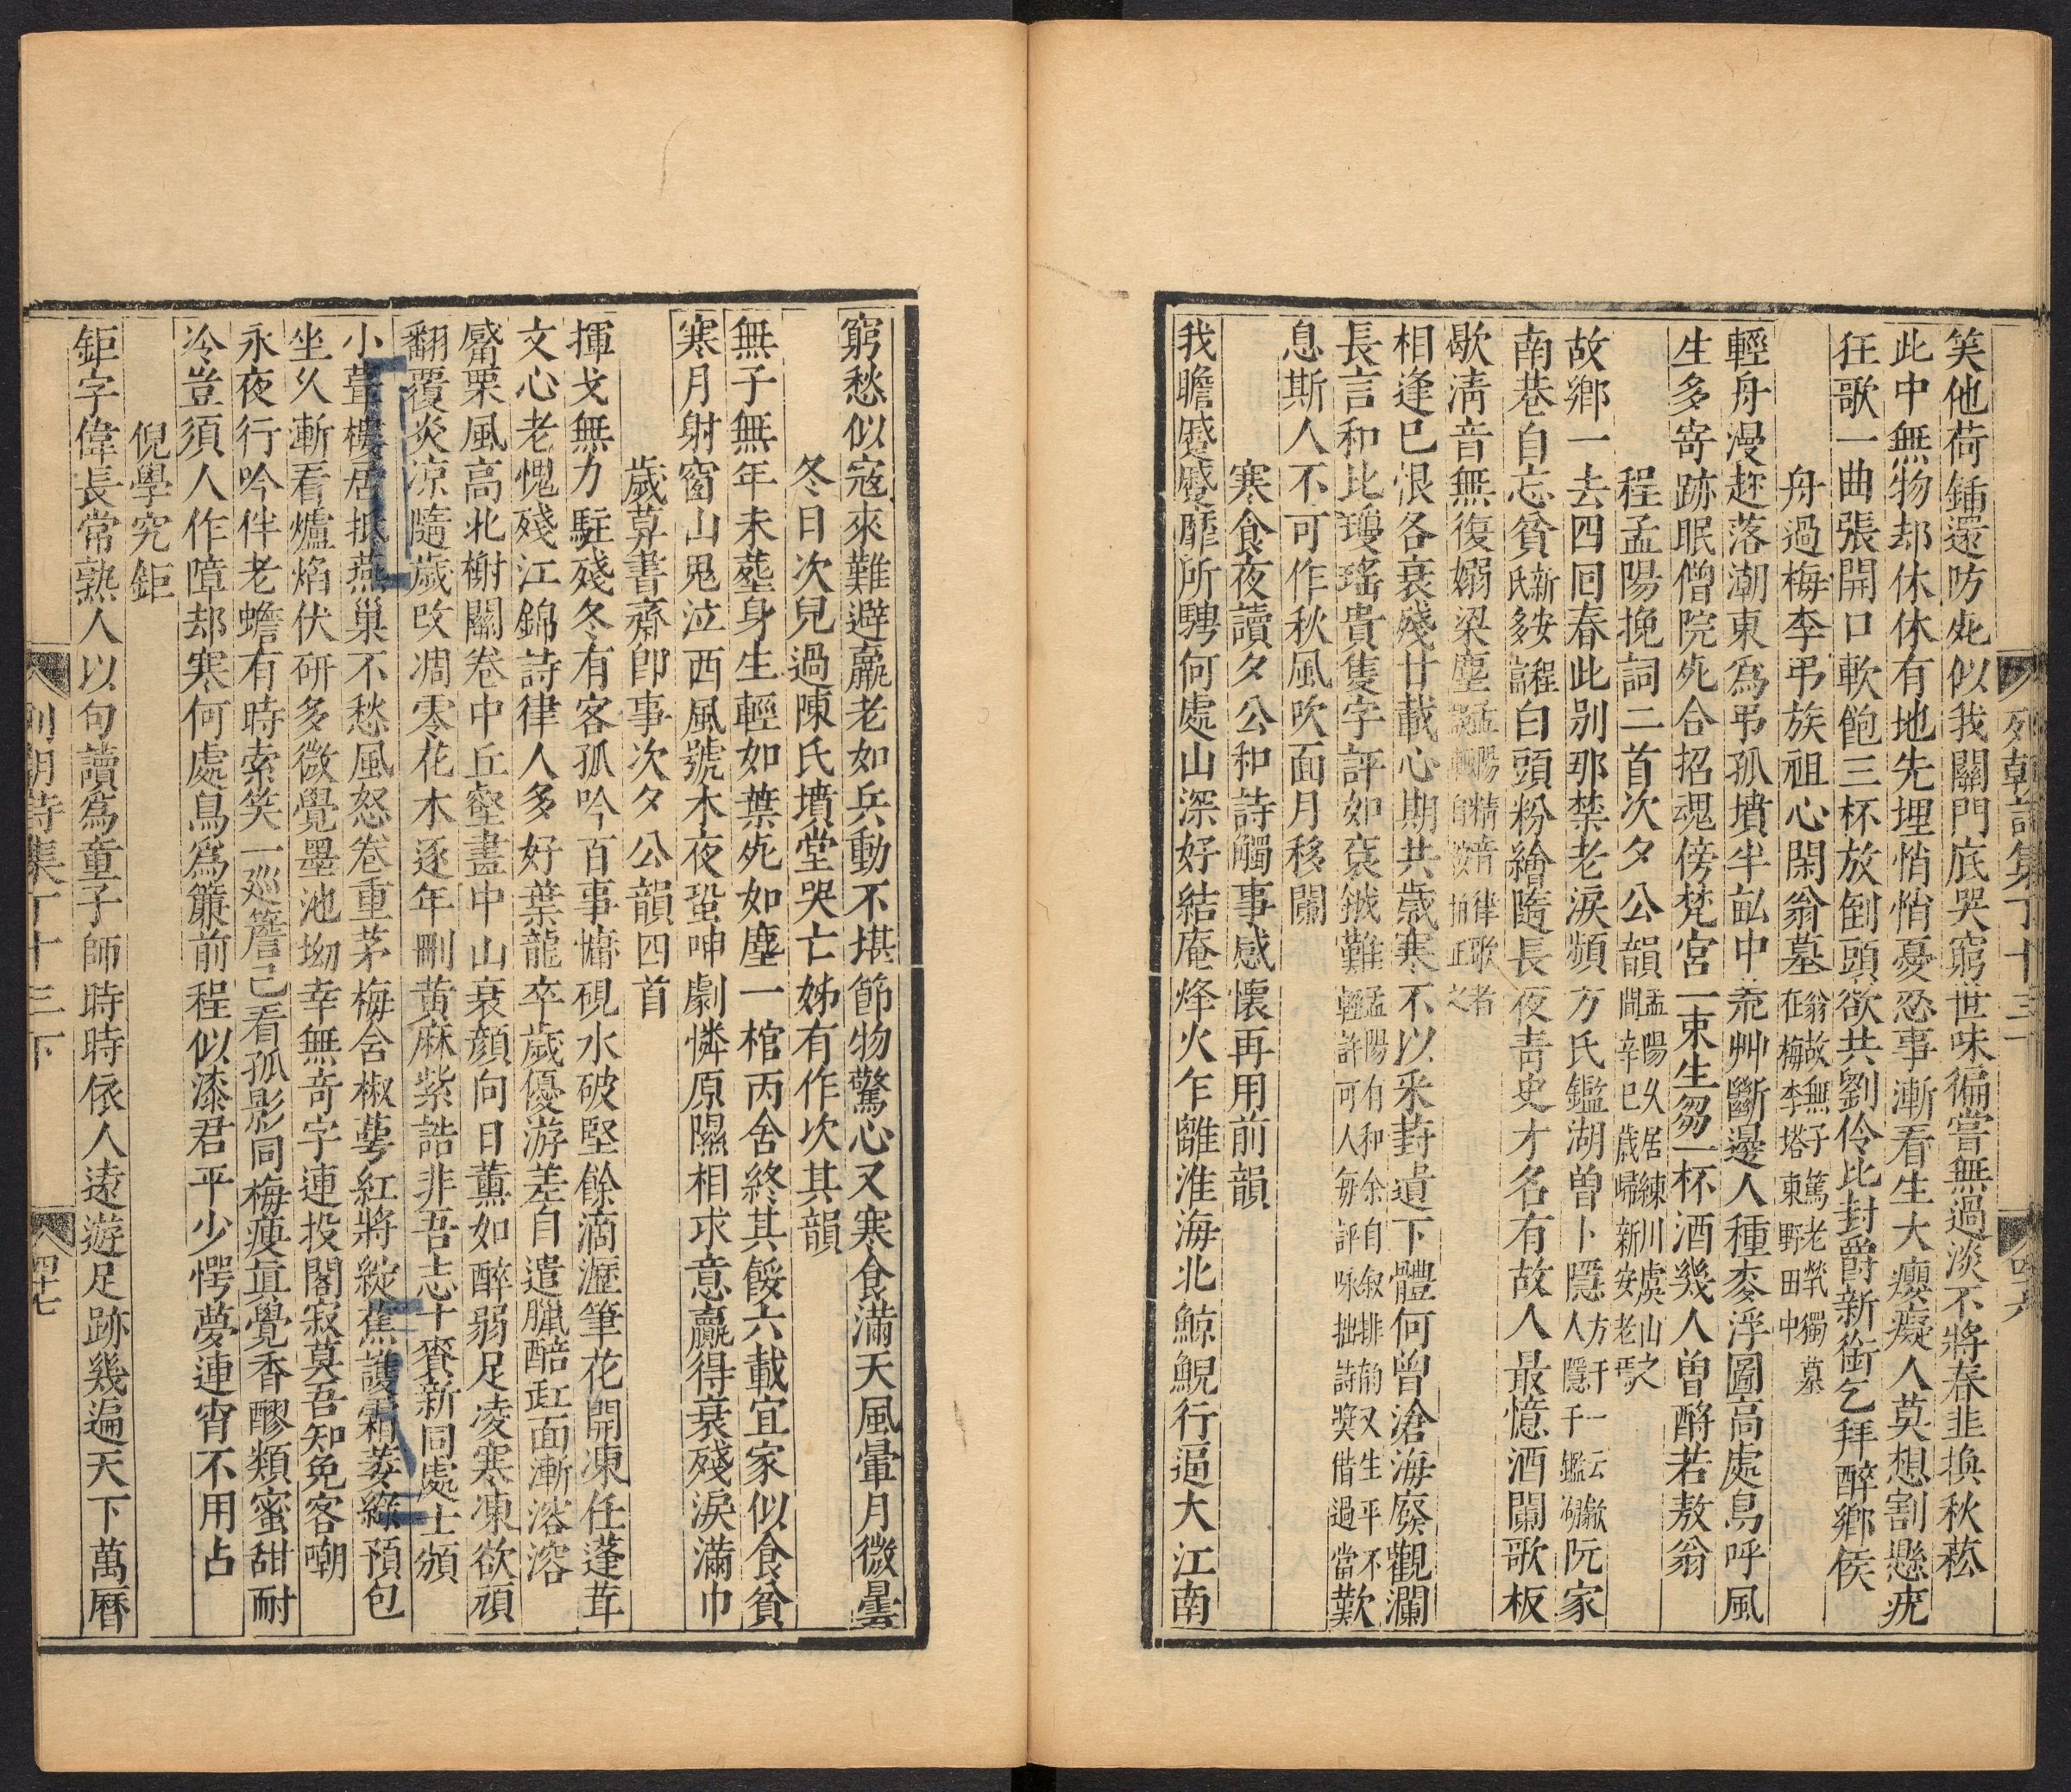 笑他荷鍤還防死似我關門底哭窮世味徧嘗無過淡不將春韭換秋菘
此中無物却休休有地先埋悄悄憂忍事漸看生大癭癡人莫想割懸疣
狂歌一曲張開口軟飽三杯放倒頭欲共劉伶比封爵新銜乞拜醉鄉侯
舟過梅李弔族祖心閑翁墓翁故無子篤老煢獨墓在梅李塔東野田中
輕舟漫趂落潮東爲弔孤墳半畝中荒艸斷邊人種麥浮圖高處鳥呼風
生多寄跡眠僧院死合招魂傍梵宮一束生芻一杯酒幾人曾酹若敖翁
程孟陽挽詞二首次夕公韻孟陽久居練川虞山之間辛巳歲歸新安老焉
故鄉一去四回春此别那禁老淚頻方氏鑑湖曾卜隱方干一云歙人隱于鑑湖阮家
南巷自忘貧新安程氏多詣白頭粉繪隨長夜靑史才名有故人最憶酒闌歌板
歇淸音無復嫋梁塵孟陽精音律歌者誤輒自按拍正之
相逢已恨各衰殘廿載心期共歲寒不以采葑遺下體何曾滄海廢觀瀾
長言和比瓊瑤貴隻字評如袞鉞難孟陽有和余自叙排韵又生平不輕許可人每評咏拙詩奬借過當歎
息斯人不可作秋風吹面月移闌
寒食夜讀夕公和詩觸事感懷再用前韻
我瞻蹙蹙靡所騁何處山深好結庵烽火乍離淮海北鯨鯢行逼大江南
列朝詩集丁十三下
四十六
窮愁似寇來難避羸老如兵動不堪節物驚心又寒食滿天風暈月微曇
冬日次兒過陳氏墳堂哭亡姊有作次其韻
無子無年未塟身生輕如葉死如塵一棺丙舍終其餒六載宜家似食貧
寒月射窗山鬼泣西風號木夜蛩呻劇憐原隰相求意贏得衰殘淚滿巾
歲莫書齋卽事次夕公韻四首
揮戈無力駐殘冬有客孤吟百事慵硯水破堅餘滴瀝筆花開凍任蓬茸
文心老愧殘江錦詩律人多好葉龍卒歲優游差自遣臘醅缸面漸溶溶
觱栗風高北榭關卷中丘壑畫中山衰顔向日薰如醉弱足凌寒凍欲頑
翻覆炎凉隨歲改凋零花木逐年刪黄麻紫誥非吾志十賚新同處士頒
小葺樓居抵燕巢不愁風怒卷重茅梅含椒萼紅將綻蕉護霜菱綠預包
坐久漸看爐焰伏研多微覺墨池坳幸無奇字連投閣寂莫吾知免客嘲
永夜行吟伴老蟾有時索笑一巡簷已看孤影同梅瘦眞覺香醪類蜜甜耐
冷豈須人作障却寒何處鳥爲簾前程似漆君平少愕夢連宵不用占
倪學究鉅
鉅字偉長常熟人以句讀爲童子師時時依人遠遊足跡幾遍天下萬曆
列朝詩集丁十三下
四十七